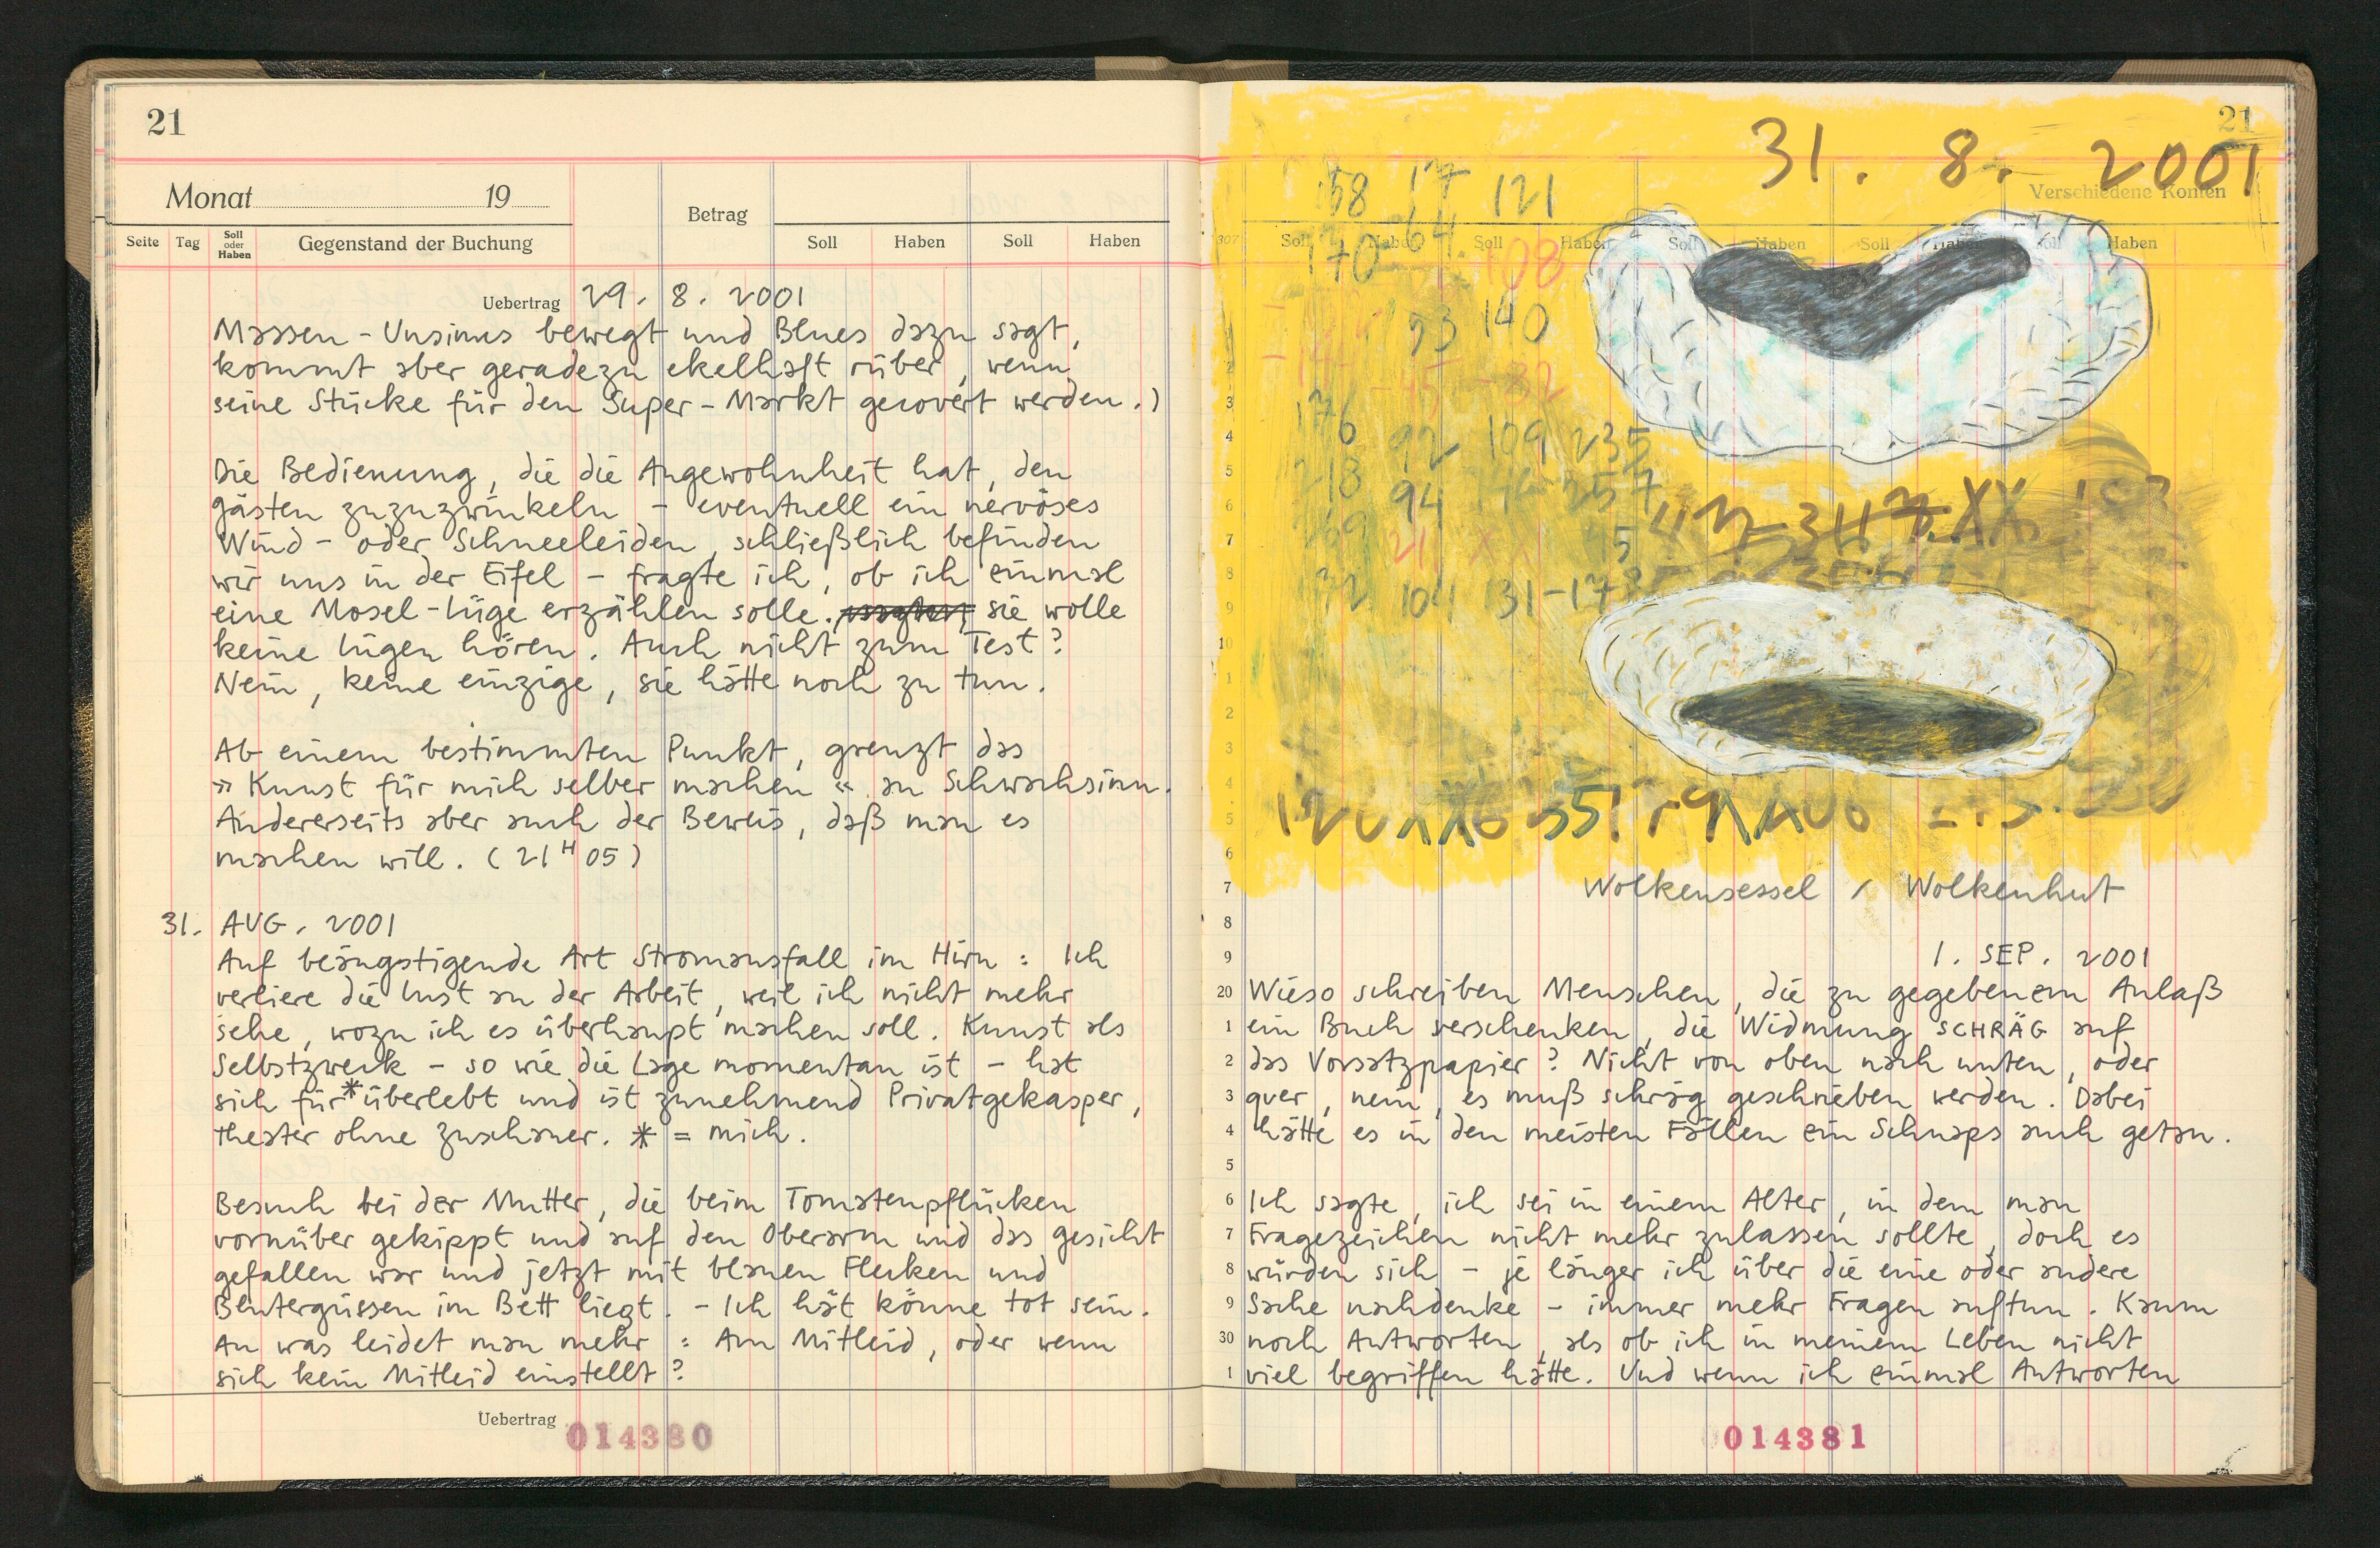 21
Monat 19
Betrag
Seite Tag Soll oder Haben Gegenstand der Buchung Soll Haben Soll Haben
Uebertrag 29. 8. 2001
Massen-Unsinns bewegt und Blues dazu sagt,
kommt aber geradezu ekelhaft rüber, wenn
seine Stücke für den Super-Markt gecovert werden.)
Die Bedienung, die die Angewohnheit hat, den
Gästen zuzuzwinkeln - eventuell ein nervöses
Wind- oder Schneeleiden, schließlich befinden
wir uns in der Eifel - fragte ich, ob ich einmal
eine Mosel-Lüge erzählen solle. sie wolle
keine Lügen hören. Auch nicht zum Test?
Nein, keine einzige, sie hätte noch zu tun.
Ab einem bestimmten Punkt, grenzt das
»Kunst für mich selber machen« an Schwachsinn.
Andererseits aber auch der Beweis, daß man es
machen will. (21H05)
31. AUG. 2001
Auf beängstigende Art Stromausfall im Hirn: Ich
verliere die Lust an der Arbeit, weil ich nicht mehr
sehe, wozu ich es überhaupt machen soll. Kunst als
Selbstzweck - so wie die Lage momentan ist - hat
sich für * überlebt und ist zunehmend Privatgekasper,
Theater ohne Zuschauer. * = mich.
Besuch bei der Mutter, die beim Tomatenpflücken
vornüber gekippt und auf den Oberarm und das Gesicht
gefallen war und jetzt mit blauen Flecken und
Blutergüssen im Bett liegt. - Ich hät könne tot sein.
An was leidet man mehr: Am Mitleid, oder wenn
sich kein Mitleid einstellt?
Uebertrag
014380
21
31. 8. 2001
Verschiedene Konten
Soll Haben Soll Haben Soll Haben Soll Haben Soll Haben
58 17 121
170 64 108
53 140
-45 -82
176 92 109 235
218 94 257
104 131-17
Wolkensessel / Wolkenhut
1. SEP. 2001
Wieso schreiben Menschen, die zu gegebenem Anlaß
ein Buch verschenken, die Widmung SCHRÄG auf
das Vorsatzpapier? Nicht von oben nach unten, oder
quer, nein, es muß schräg geschrieben werden. Dabei
hätte es in den meisten Fällen ein Schnaps auch getan.
Ich sagte, ich sei in einem Alter, in dem man
Fragezeichen nicht mehr zulassen sollte, doch es
würden sich - je länger ich über die eine oder andere
Sache nachdenke - immer mehr Fragen auftun. Kaum
noch Antworten, als ob ich in meinem Leben nicht
viel begriffen hätte. Und wenn ich einmal Antworten
014381